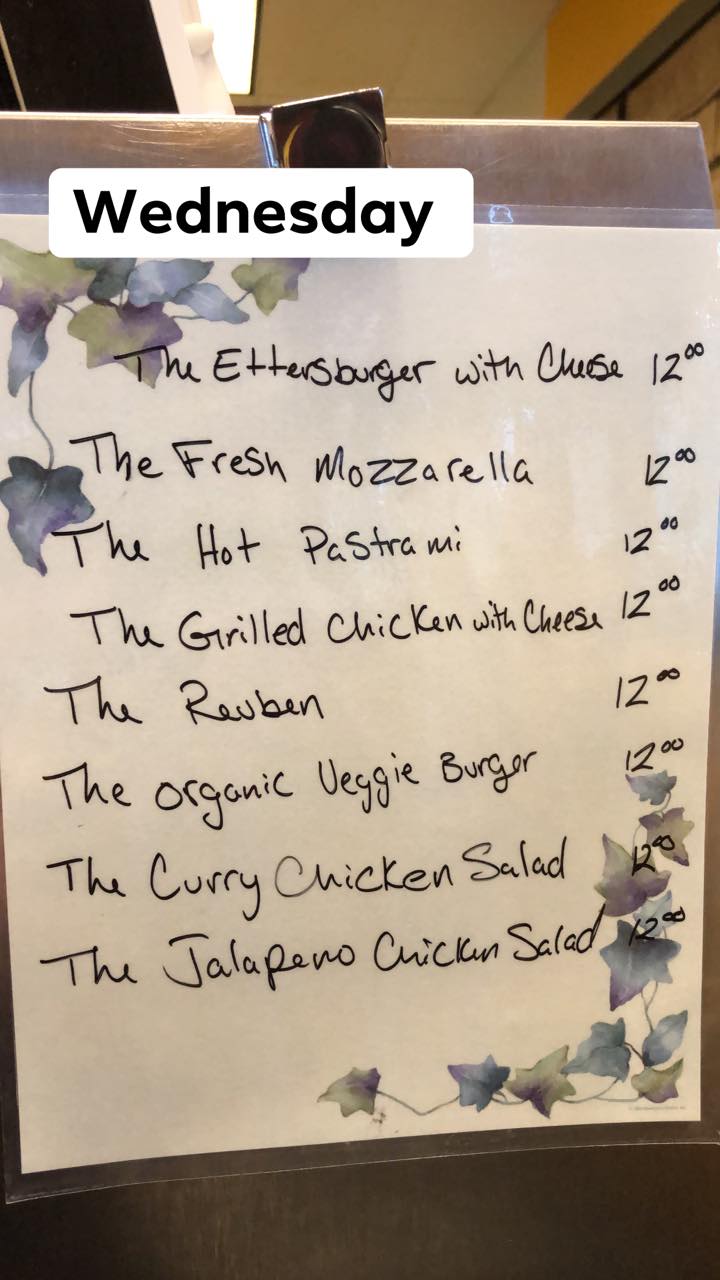 Wednesday
The Ettersburger with Cheese 12⁰⁰
The Fresh Mozzarella 12⁰⁰
The Hot Pastrami 12⁰⁰
The Grilled Chicken with Cheese 12⁰⁰
The Reuben 12⁰⁰
The organic Veggie Burger 12⁰⁰
The Curry Chicken Salad 12⁰⁰
The Jalapeno Chicken Salad 12⁰⁰